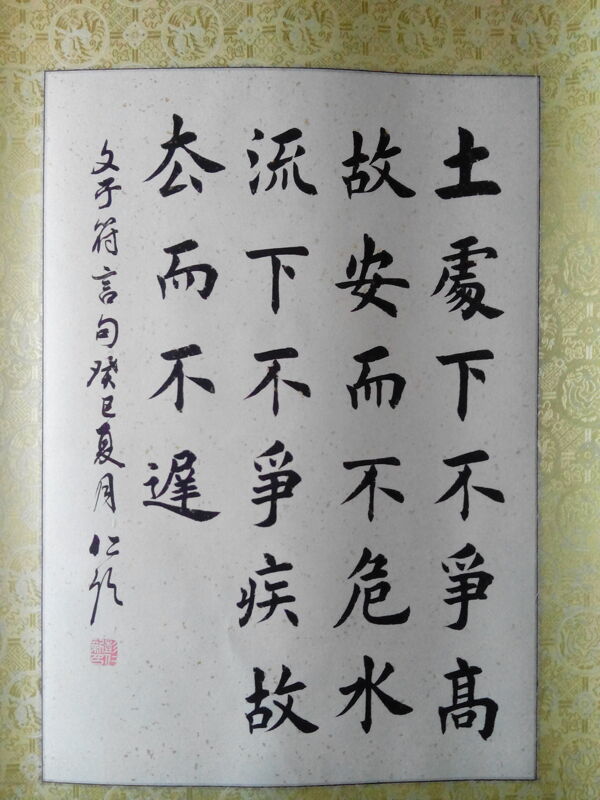 土處下不爭髙
故安而不危水
流下不爭疾故
厺而不遲
文子符言句癸巳夏月仁